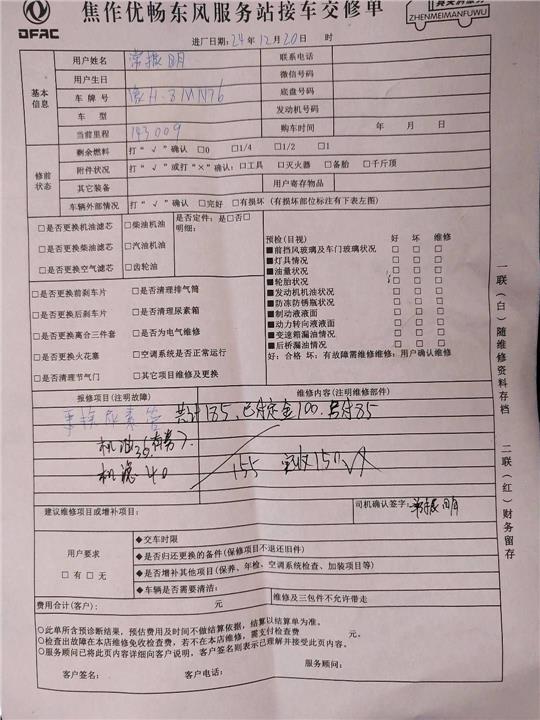 焦作优畅东风服务站接车交修单
DFAC
真英满服务
ZHENMEIMANFUWU
进厂日期: 24年12月20日 时
基本信息
用户姓名 常振明 联系电话
用户生日 微信号码
车牌号 豫H·8MN76 底盘号码
车型 发动机号码
当前里程 143009 购车时间 年 月 日
修前状态
剩余燃料 打“√”确认 □0 □1/4 □1/2 □1
附件状况 打“√”或打“×”确认:□工具 □灭火器 □备胎 □千斤顶
其它装备 用户寄存物品
车辆外部情况 打“√”确认 □完好 □有损坏(有损坏部位标注有下表左图)
□是否更换机油滤芯 □柴油机油
□是否更换柴油滤芯 □汽油机油
□是否更换空气滤芯 □齿轮油
是否定件:是□否□
明细:
□是否更换前刹车片 □是否清理排气筒
□是否更换后刹车片 □是否清理尿素箱
□是否更换离合三件套 □是否为电气维修
□是否更换火花塞 □空调系统是否正常运行
□是否清理节气门 □其它项目维修及更换
预检(目视) 好 坏 维修
■前挡风玻璃及车门玻璃状况 □ □ □
■灯具情况 □ □ □
■油量状况 □ □ □
■轮胎状况 □ □ □
■发动机机油状况 □ □ □
■防冻防锈瓶状况 □ □ □
■制动液液面 □ □ □
■动力转向液液面 □ □ □
■变速箱漏油情况 □ □ □
■后桥漏油情况 □ □ □
好:合格 坏:有故障需维修维修:用户确认维修
报修项目(注明故障) 维修内容(注明维修部件)
尿素管 共计185,已付定金100,另付85
机油30
机滤 40 155 实收150
建议维修项目或增补项目: 司机确认签字: 常振明
用户要求
□有 □无
◆交车时限
◆是否归还更换的备件(保修项目不退还旧件)
◆是否增补其他项目(保养、年检、空调系统检查、加装项目等)
◆车辆是否需要清洁:
费用合计(客户): 元 维修及三包件不允许带走
○此单所含预诊断结果,预估费用及时间不做结算依据,结算以结算单为准。
○检查出故障在本店维修免收检查费,若不在本店维修,需支付检查费 元。
○服务顾问已将此页内容详细向客户说明,客户签名则表示已理解并接受此页内容。
客户签名: 客户电话: 服务顾问:
一联(白)随维修资料存档
二联(红)财务留存